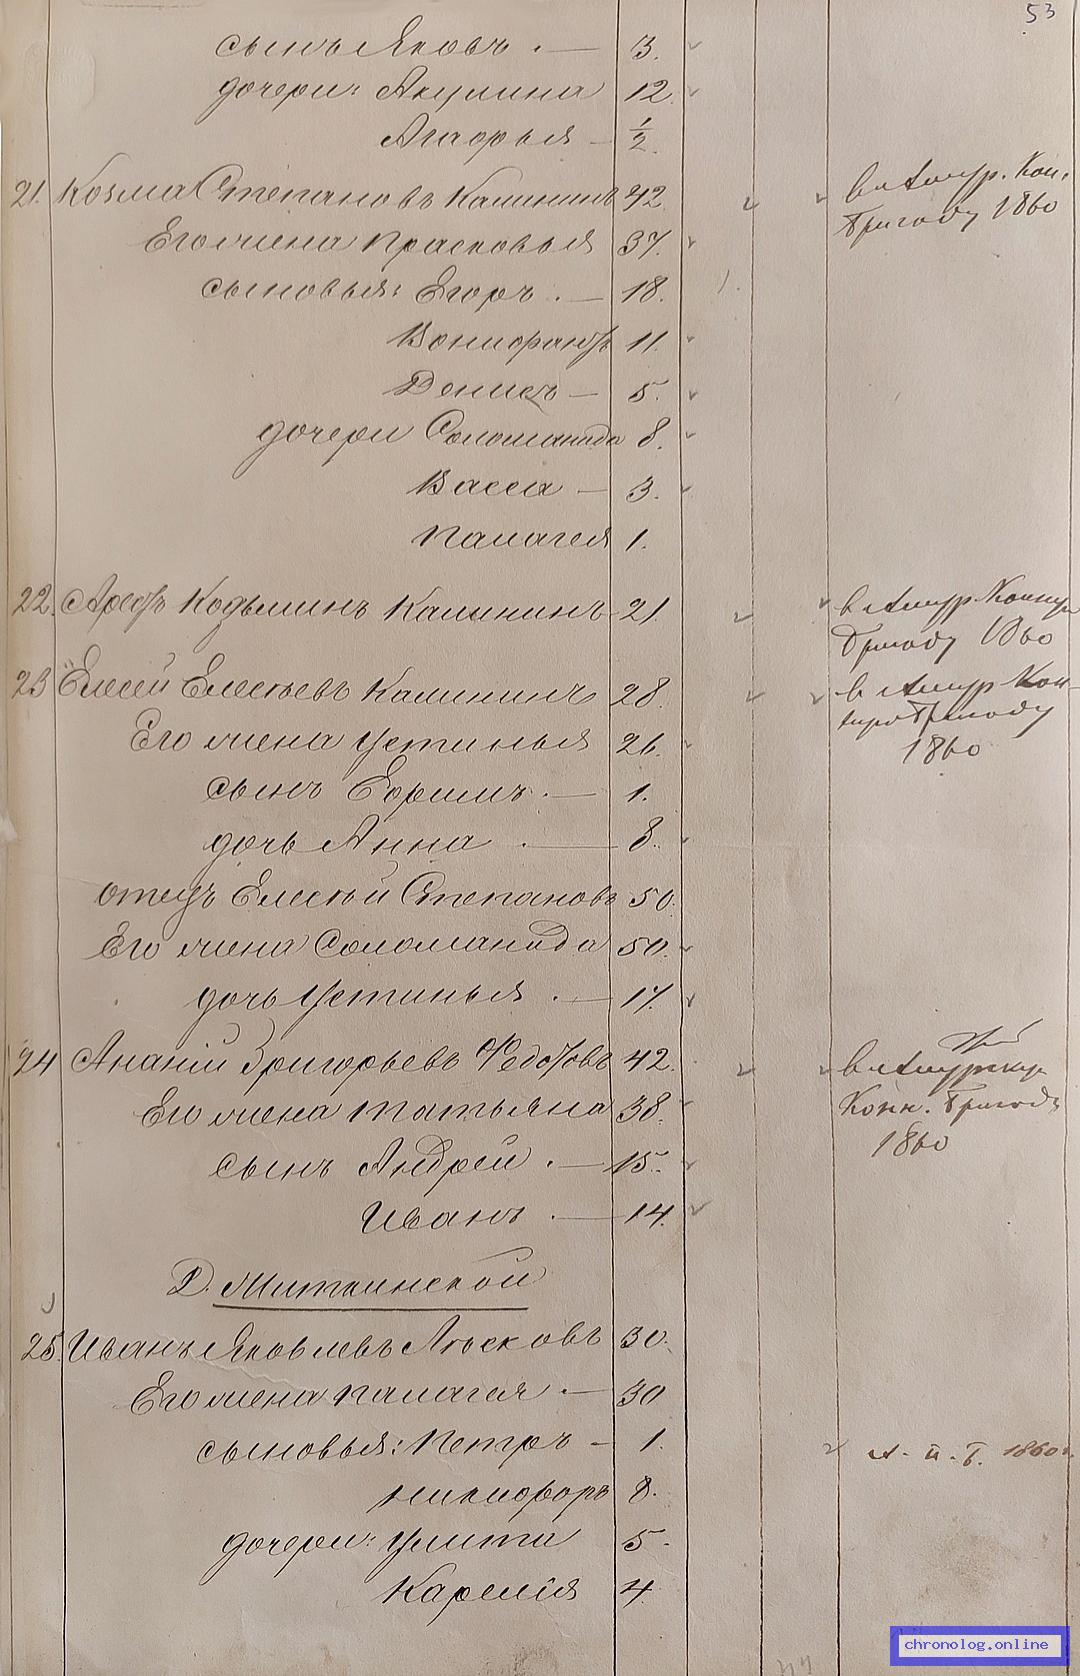 53
сынъ Яковъ . — 3.
дочери: Акулина 12.
Агафья — 1/2.
21. Козма Степановъ Калининъ 42 в Амур. Кон.
бригаду 1860
Его жена Прасковья 37.
сыновья: Егоръ . — 18.
Вонифатъ 11.
Денисъ — 5.
дочери Соломанида 8.
Васса — 3.
Палагея 1.
22. Арефъ Козьминъ Калининъ 21 в Амур Конную
бригаду 1860
23 Елесей Елесѣевъ Калининъ 28. в Амур Кон-
ную бригаду
1860
Его жена Устинья 26.
сынъ Ефримъ . — 1.
дочь Анна . — 8.
отецъ Елесѣй Степановъ 50.
Его жена Соломанида 50.
дочь Устинья . — 17.
24 Ананій Григорьевъ Федотовъ 42. в Амурскую
Конн. бригаду
1860
Его жена Татьяна 38.
сынъ Андрей . — 15.
Иванъ . — 14.
Д. Миткинской
25. Иванъ Яковлевъ Лѣсковъ 30.
Его жена Палагея . — 30
сыновья: Петръ — 1. А. п. б. 1860 г.
Никифоръ 8.
дочери: Улита 5.
Карелія 4.
chronolog.online